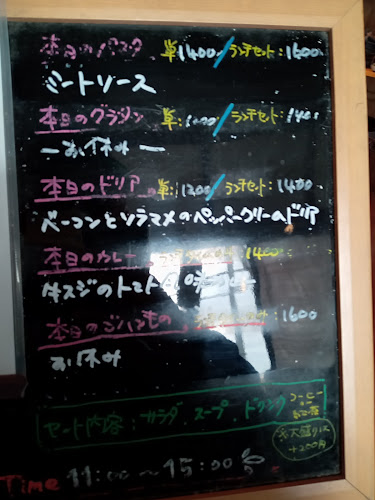 本日のパスタ 単1400/ランチセット:1600
ミートソース
本日のグラタン 単: /ランチセット:
ーお休みー
本日のドリア 単:1200/ランチセット:1400
ベーコンとソラマメのペッパークリームドリア
本日のカレー 1400
牛スジのトマト
本日のごはんもの 1600
お休み
セット内容:サラダ、スープ、ドリンク コーヒー or 紅茶
※大盛りは
+200円
Time 11:00〜15:00